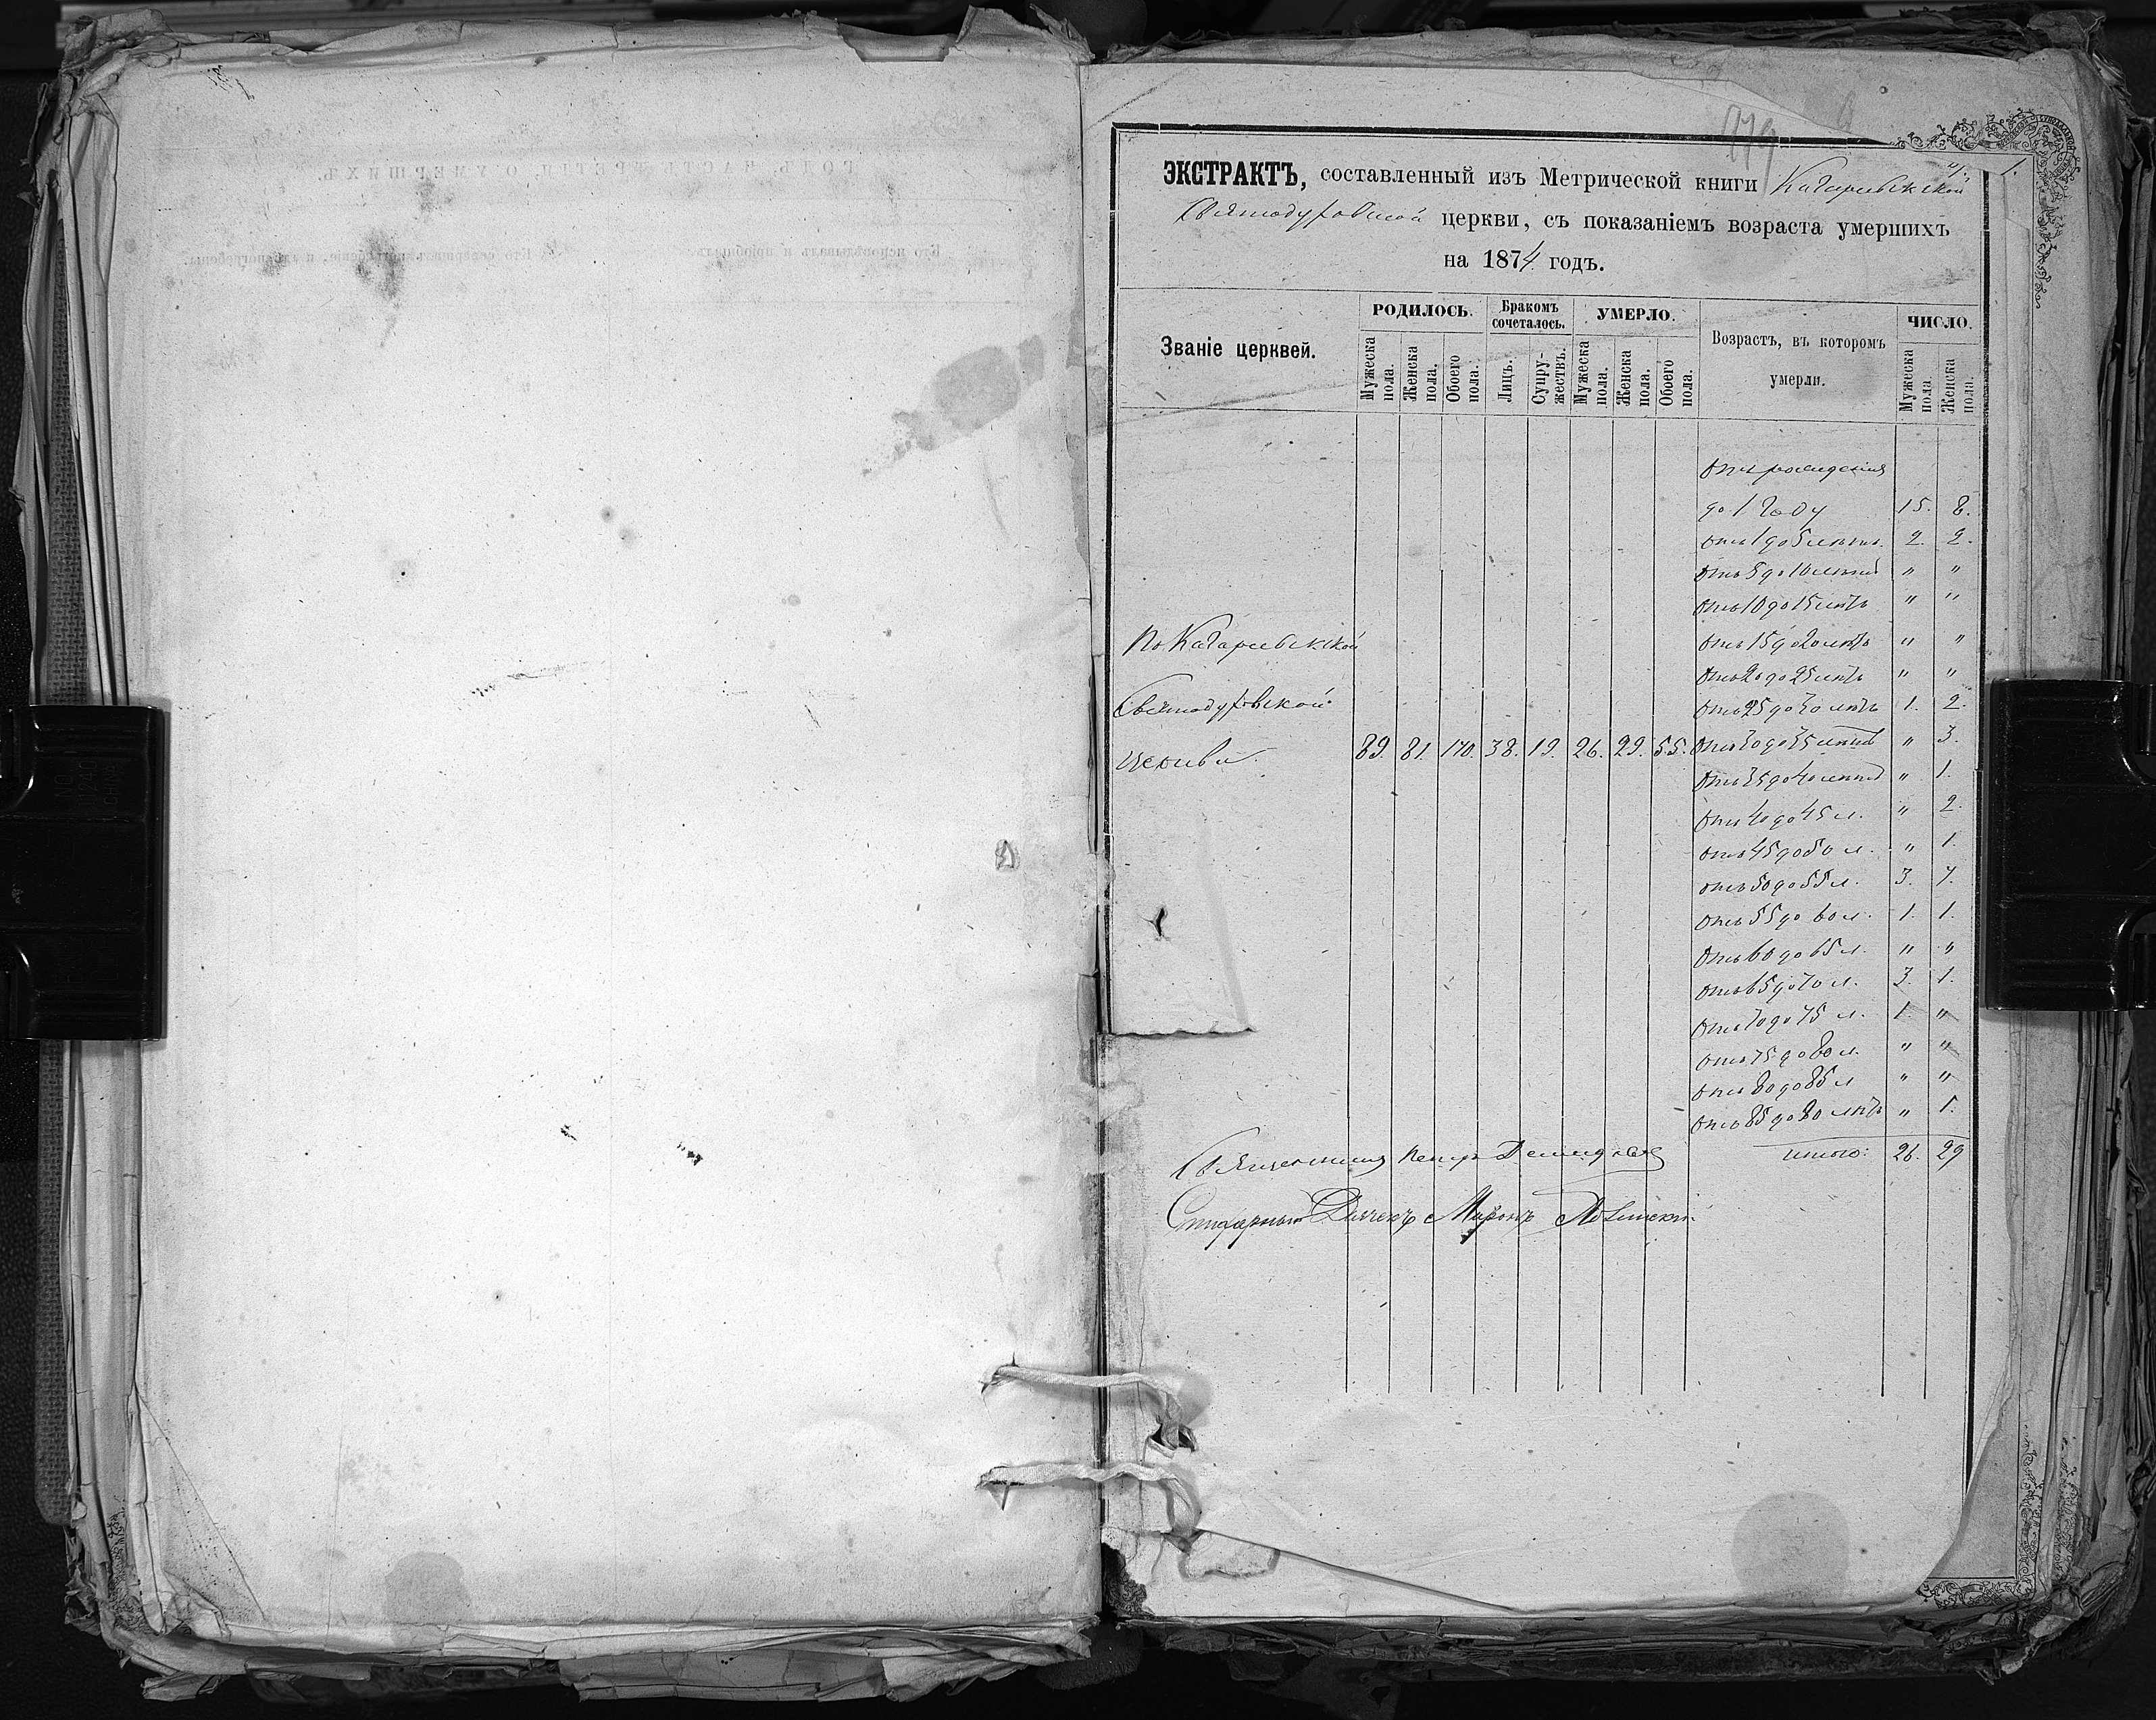 ЭКСТРАКТЪ, составленный изъ Метрической книги Качаривской
Святодуховской церкви, съ показаніемъ возраста умершихъ
на 1874 годъ.
Званіе церквей.
РОДИЛОСЬ.
Бракомъ сочеталось.
УМЕРЛО.
Возрастъ, въ которомъ умерли.
ЧИСЛО.
Мужеска пола.
Женска пола.
Обоего пола.
Лицъ.
Супружествъ.
Мужеска пола.
Женска пола.
Обоего пола.
Мужеска пола.
Женска пола.
Отъ рожденія
до 1 году 15. 8.
отъ 1 до 5 летъ. 2. 2.
Отъ 5 до 10 летъ " "
Отъ 10 до 15 летъ " "
Отъ 15 до 20 летъ " "
Отъ 20 до 25 летъ " "
Отъ 25 до 30 летъ 1. 2.
Святодуховской
церкви 89. 81. 170. 38. 19. 26. 29. 55. Отъ 30 до 35 летъ " 3.
Отъ 35 до 40 летъ " 1.
Отъ 40 до 45 л. " 2.
отъ 45 до 50 л. " 1.
отъ 50 до 55 л. 3. 7.
отъ 55 до 60 л. 1. 1.
Отъ 60 до 65 л. " "
отъ 65 до 70 л. 3. 1.
Отъ 70 до 75 л. 1. "
отъ 75 до 80 л. " "
отъ 80 до 85 л " "
отъ 85 до 90 летъ " 1.
итого: 26. 29
Священникъ Петръ
Дьячекъ Миронъ